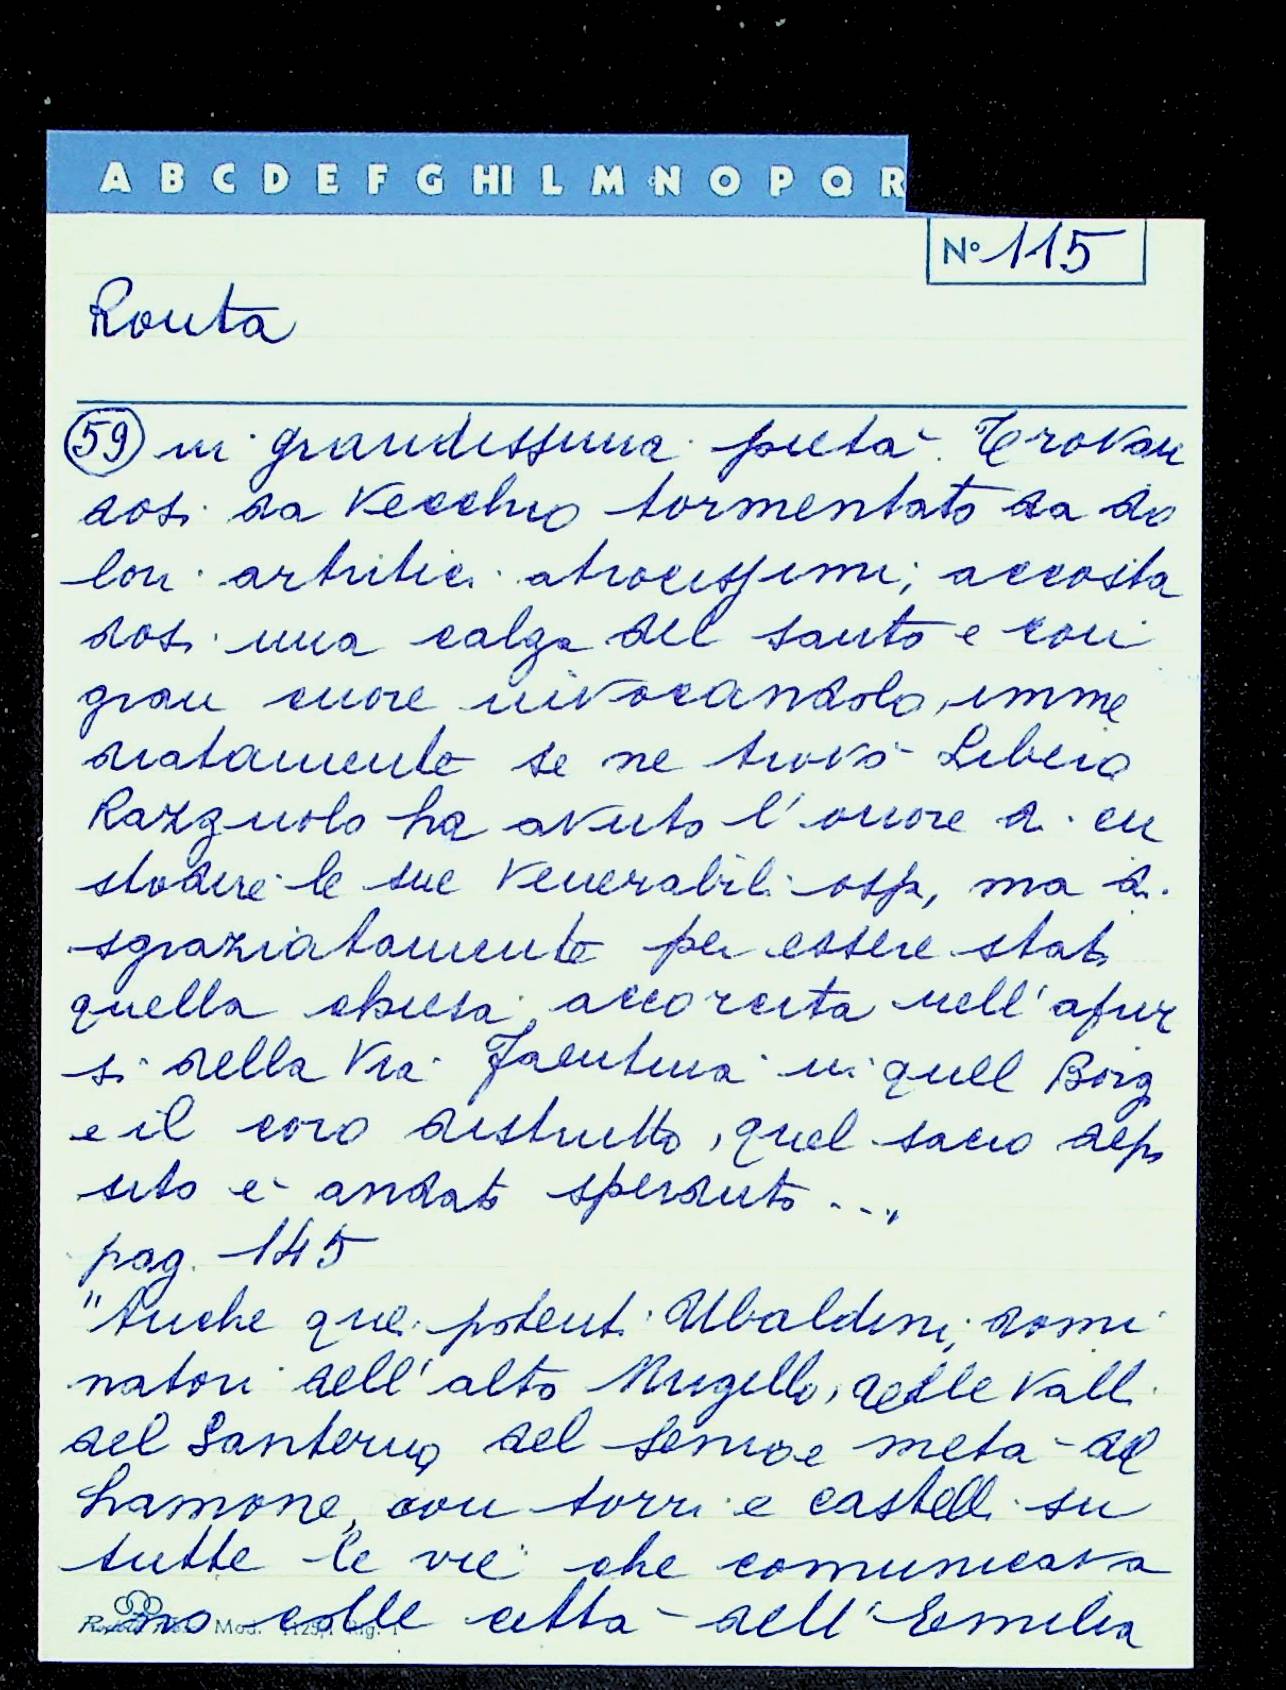 A B C D E F G HI L M N O P Q R
N° 115
Ronta
59 in grandissima pietà. Trovan
dosi da vecchio tormentato da do
lori artritici atrocissimi, accosta
dosi una calza del santo e con
gran cuore invocandolo, imme
diatamente se ne trovò libero
Razzuolo ha avuto l'onore di cu
stodire le sue venerabili ossa, ma di
sgraziatamente per essere stata
quella chiesa accorciata nell'
si della Via Faentina in quell Borg
e il coro distrutto, quel sacro depo
sito è andato sperduto ..."
pag. 145
"Anche quei potenti Ubaldini, domi
natori dell'alto Mugello, delle valli
del Santerno, del Senio e metà del
Lamone, con torri e castelli su
tutte le vie che comunicava
no colle città dell'Emilia
Mod.